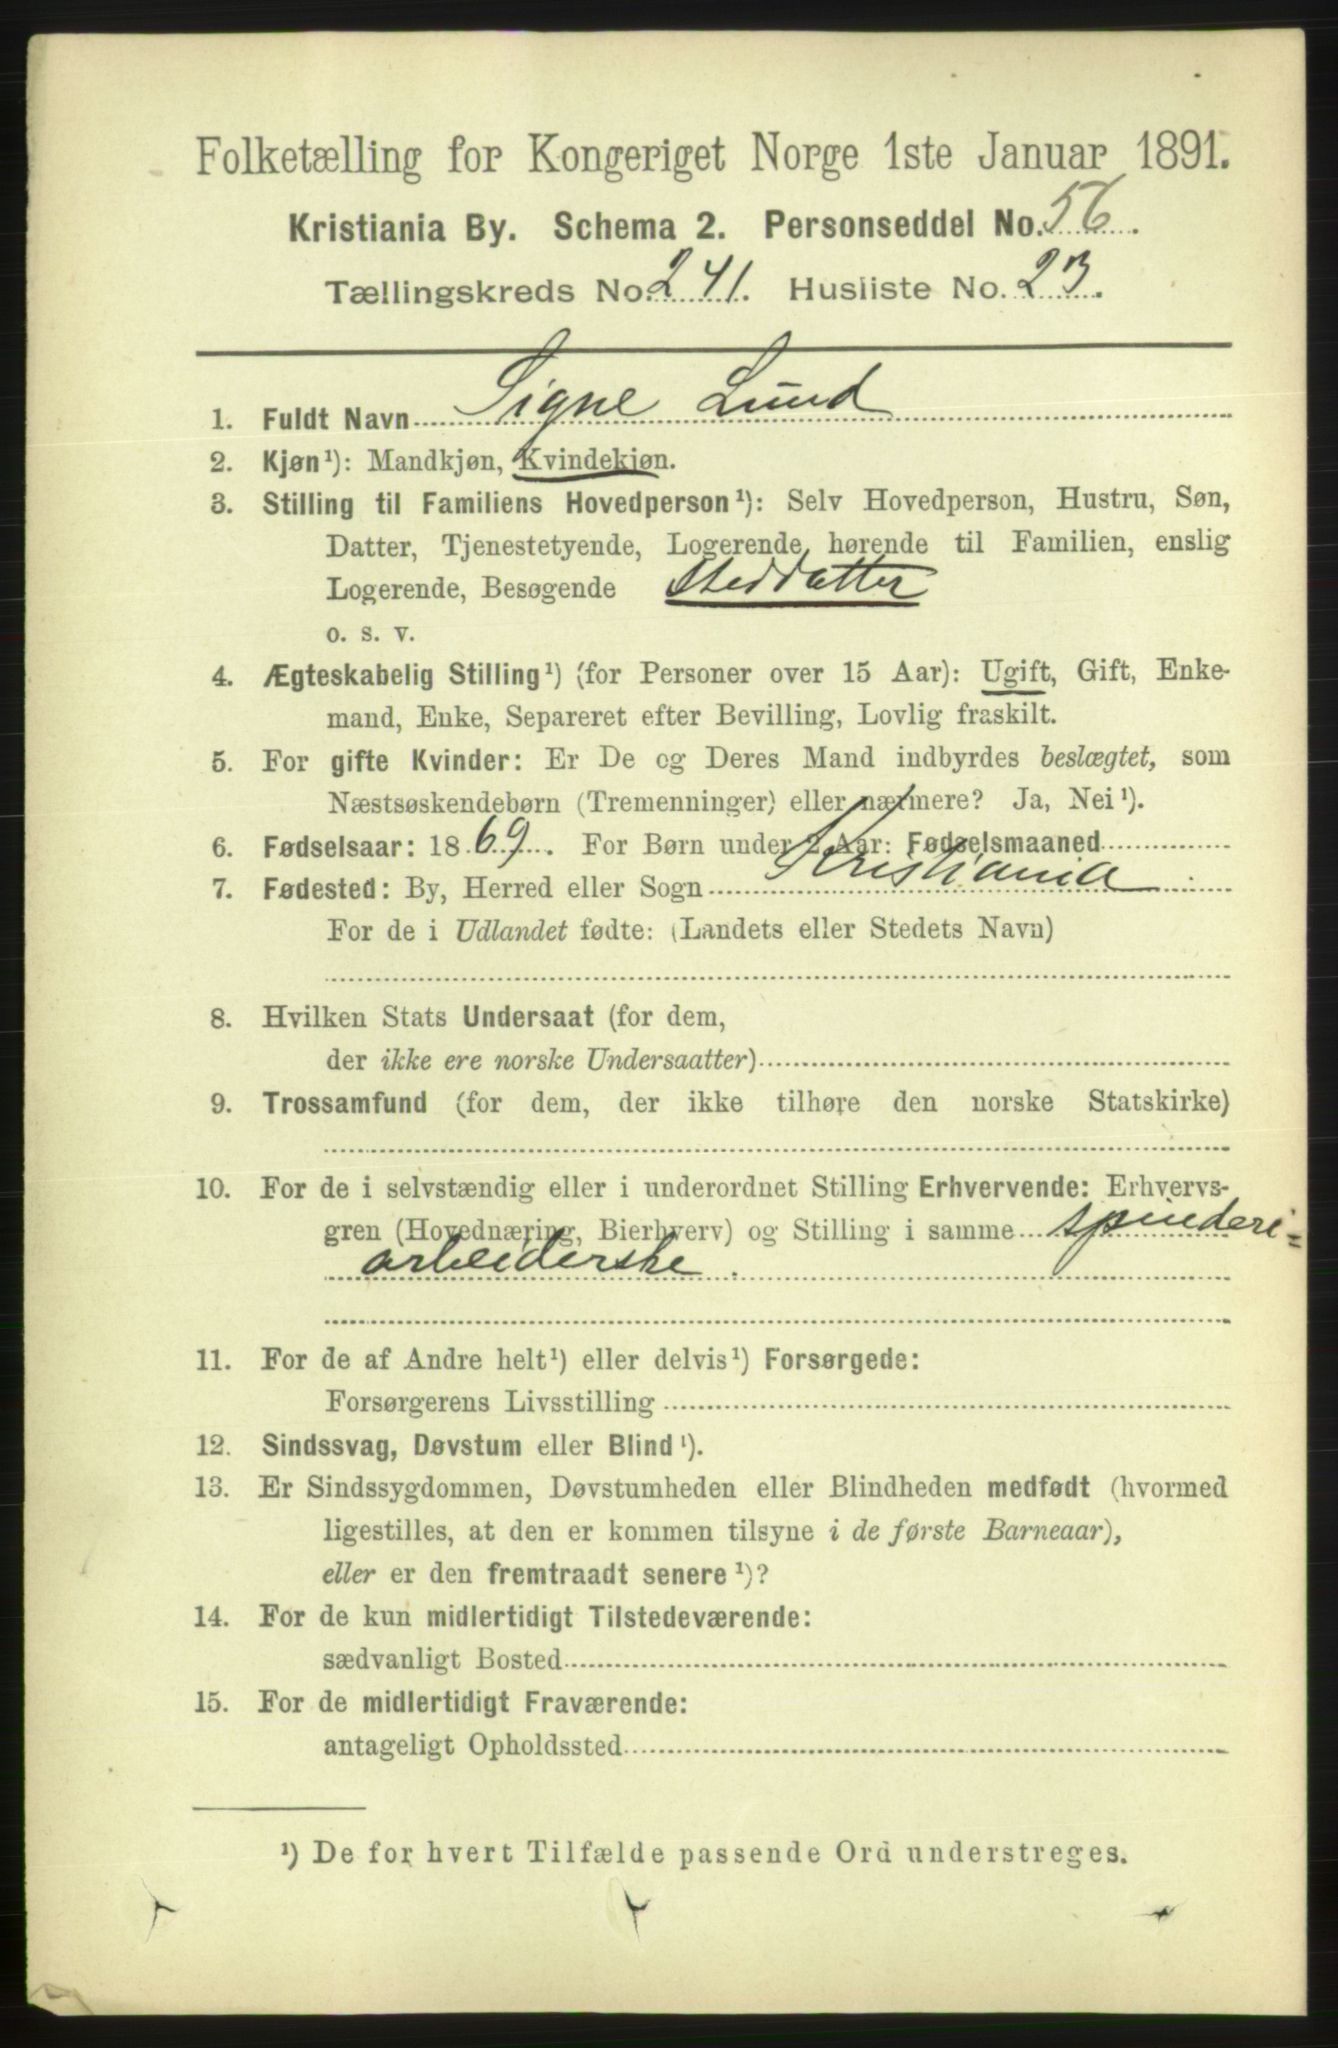 Folketælling for Kongeriget Norge 1ste Januar 1891.
Kristiania By. Schema 2. Personseddel No. 56.
Tællingskreds No. 241. Husliste No. 23.
1. Fuldt Navn Signe Lund
2. Kjøn¹): Mandkjøn, Kvindekjøn.
3. Stilling til Familiens Hovedperson¹): Selv Hovedperson, Hustru, Søn,
Datter, Tjenestetyende, Logerende hørende til Familien, enslig
Logerende, Besøgende Steddatter
o. s. v.
4. Ægteskabelig Stilling¹) (for Personer over 15 Aar): Ugift, Gift, Enke-
mand, Enke, Separeret efter Bevilling, Lovlig fraskilt.
5. For gifte Kvinder: Er De og Deres Mand indbyrdes beslægtet, som
Næstsøskendebørn (Tremenninger) eller nærmere? Ja, Nei¹).
6. Fødselsaar: 1869. For Børn under 2 Aar: Fødselsmaaned
7. Fødested: By, Herred eller Sogn Kristiania
For de i Udlandet fødte: (Landets eller Stedets Navn)
8. Hvilken Stats Undersaat (for dem,
der ikke ere norske Undersaatter)
9. Trossamfund (for dem, der ikke tilhøre den norske Statskirke)
10. For de i selvstændig eller i underordnet Stilling Erhvervende: Erhvervs-
gren (Hovednæring, Bierhverv) og Stilling i samme spinderi=
arbeiderske.
11. For de af Andre helt¹) eller delvis¹) Forsørgede:
Forsørgerens Livsstilling
12. Sindssvag, Døvstum eller Blind¹).
13. Er Sindssygdommen, Døvstumheden eller Blindheden medfødt (hvormed
ligestilles, at den er kommen tilsyne i de første Barneaar),
eller er den fremtraadt senere¹)?
14. For de kun midlertidigt Tilstedeværende:
sædvanligt Bosted
15. For de midlertidigt Fraværende:
antageligt Opholdssted
¹) De for hvert Tilfælde passende Ord understreges.